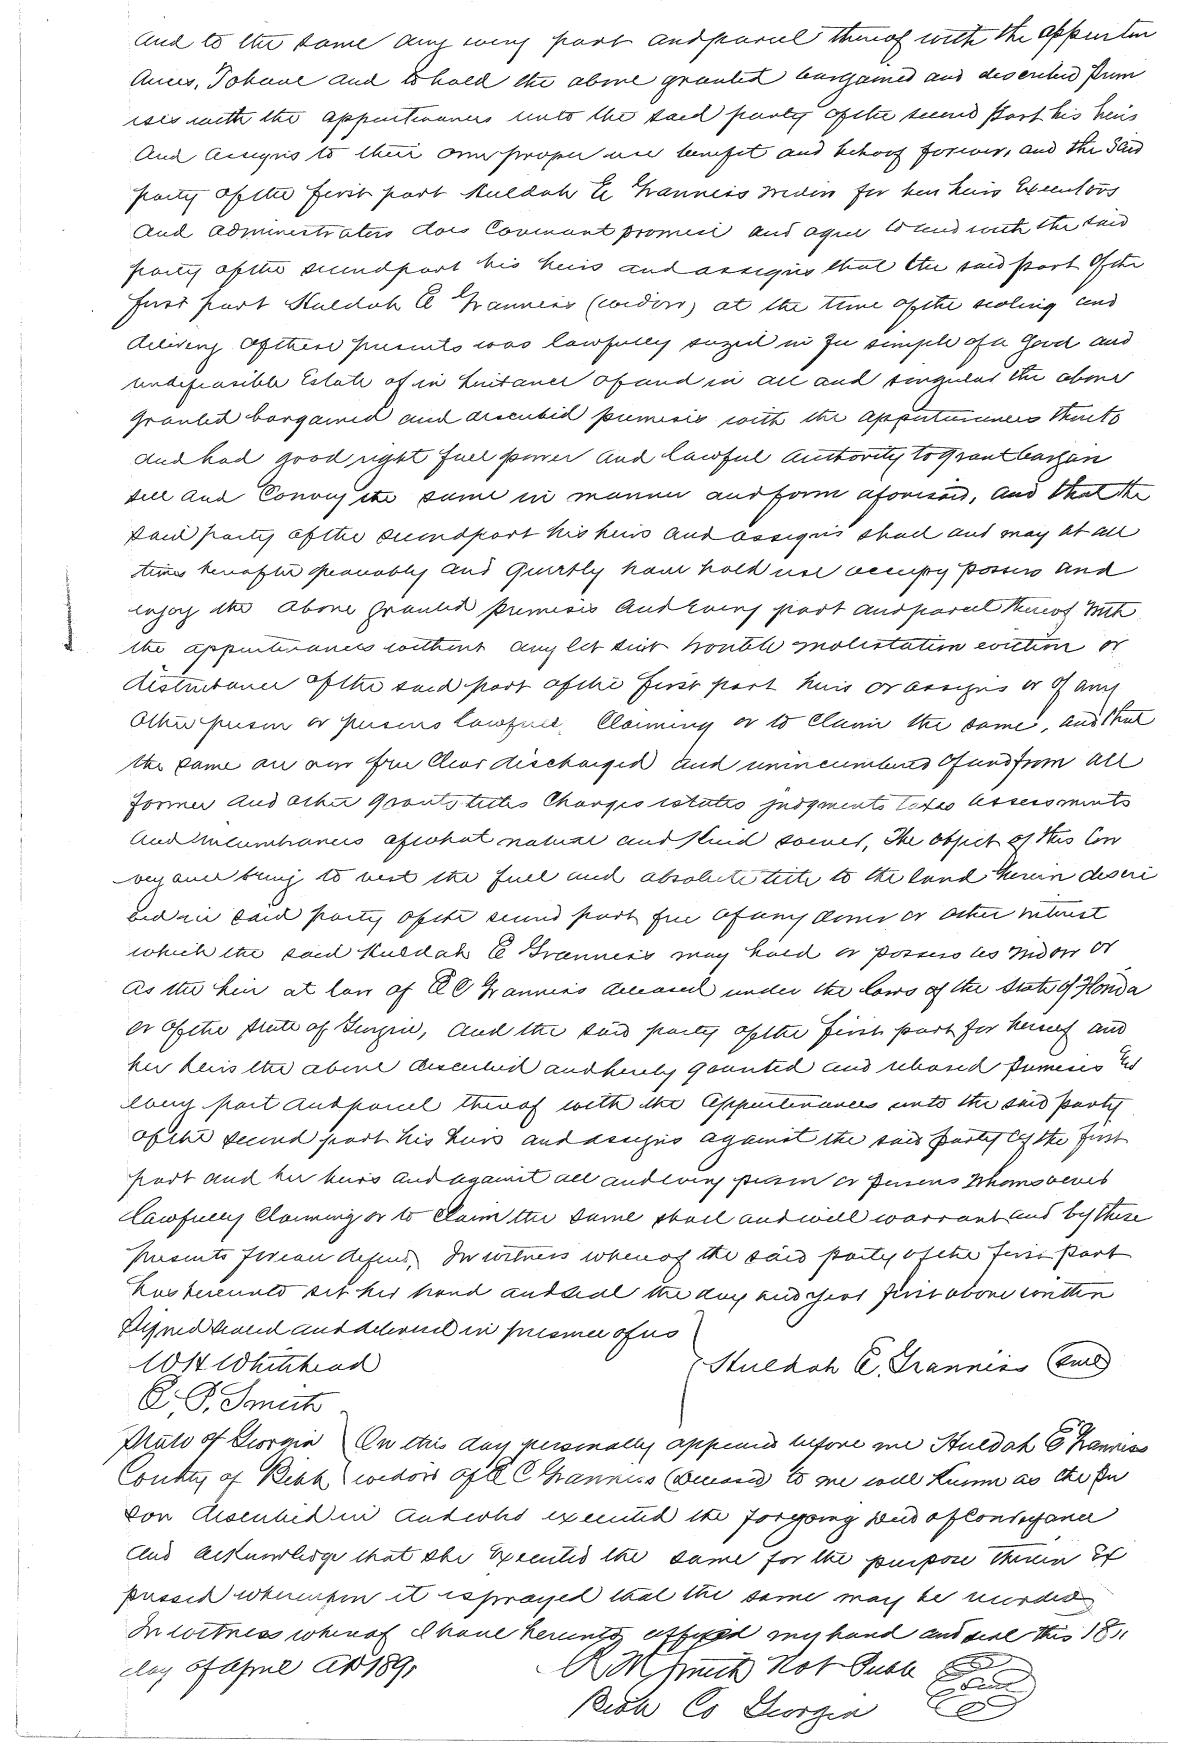 and to the same any every part and parcel thereof with the appurten
ances, To have and to hold the above granted bargained and described Prem
ises with the appurtenances unto the said party of the second Part his heirs
And assigns to their own proper use benefit and behoof forever, and the Said
party of the first part Huldah E Granniss widow for her heirs Executors
And administrators does Covenant promise and agree to and with the said
party of the second part his heirs and assigns that the said part of the
first part Huldah E Granniss (widow) at the time of the sealing and
delivery of these presents was lawfully seized in fee simple of a good and
undefeasible Estate of in heritance of and in all and singular the above
granted bargained and described premises with the appurtenances thereto
and had good right full power and lawful authority to grant bargain
sell and Convey the same in manner and form aforesaid, and that the
said party of the second part his heirs and assigns shall and may at all
times hereafter peaceably and Quietly have hold use occupy possess and
enjoy the above granted premises And Every part and parcel thereof with
the appurtenances without any let suit trouble molestation eviction or
disturbance of the said part of the first part heirs or assigns or of any
other person or persons lawfull Claiming or to claim the same, and that
the same are now free Clear discharged and unincumbered of and from all
former and other grants titles Charges estates judgments taxes assessments
and incumbrances of what nature and Kind soever, The object of this Con
veyance being to vest the full and absolute title to the land herein descri
bed in said party of the second part free of any dower or other interest
which the said Huldah E Granniss may hold or possess as widow or
as the heir at law of E C Granniss deceased under the laws of the State of Florida
or of the State of Georgia, and the said party of the first part for herself and
her heirs the above described and hereby granted and released Premises and
every part and parcel thereof with the appurtenances unto the said Party
of the second part his heirs and assigns against the said party of the first
part and her heirs and against all and every person or persons whomsoever
lawfully Claiming or to Claim the same shall and will warrant and by these
presents forever defend, In witness whereof the said party of the first part
has hereunto set her hand and seal the day and year first above written
Signed sealed and delivered in presence of us
W H Whitehead Huldah E. Granniss (seal)
E. P. Smith
State of Georgia On this day personally appeared before me Huldah E Granniss
County of Bibb widow of E C Granniss (deceased) to me well Known as the Per
son described in and who executed the forgoing Deed of Conveyance
And acknowledge that she Executed the same for the purpose therein Ex
pressed whereupon it is prayed that the same may be recorded
In witness whereof I have hereunto affixed my hand and seal this 18
day of April AD 189
R M Smith Not Public
Bibb Co Georgia